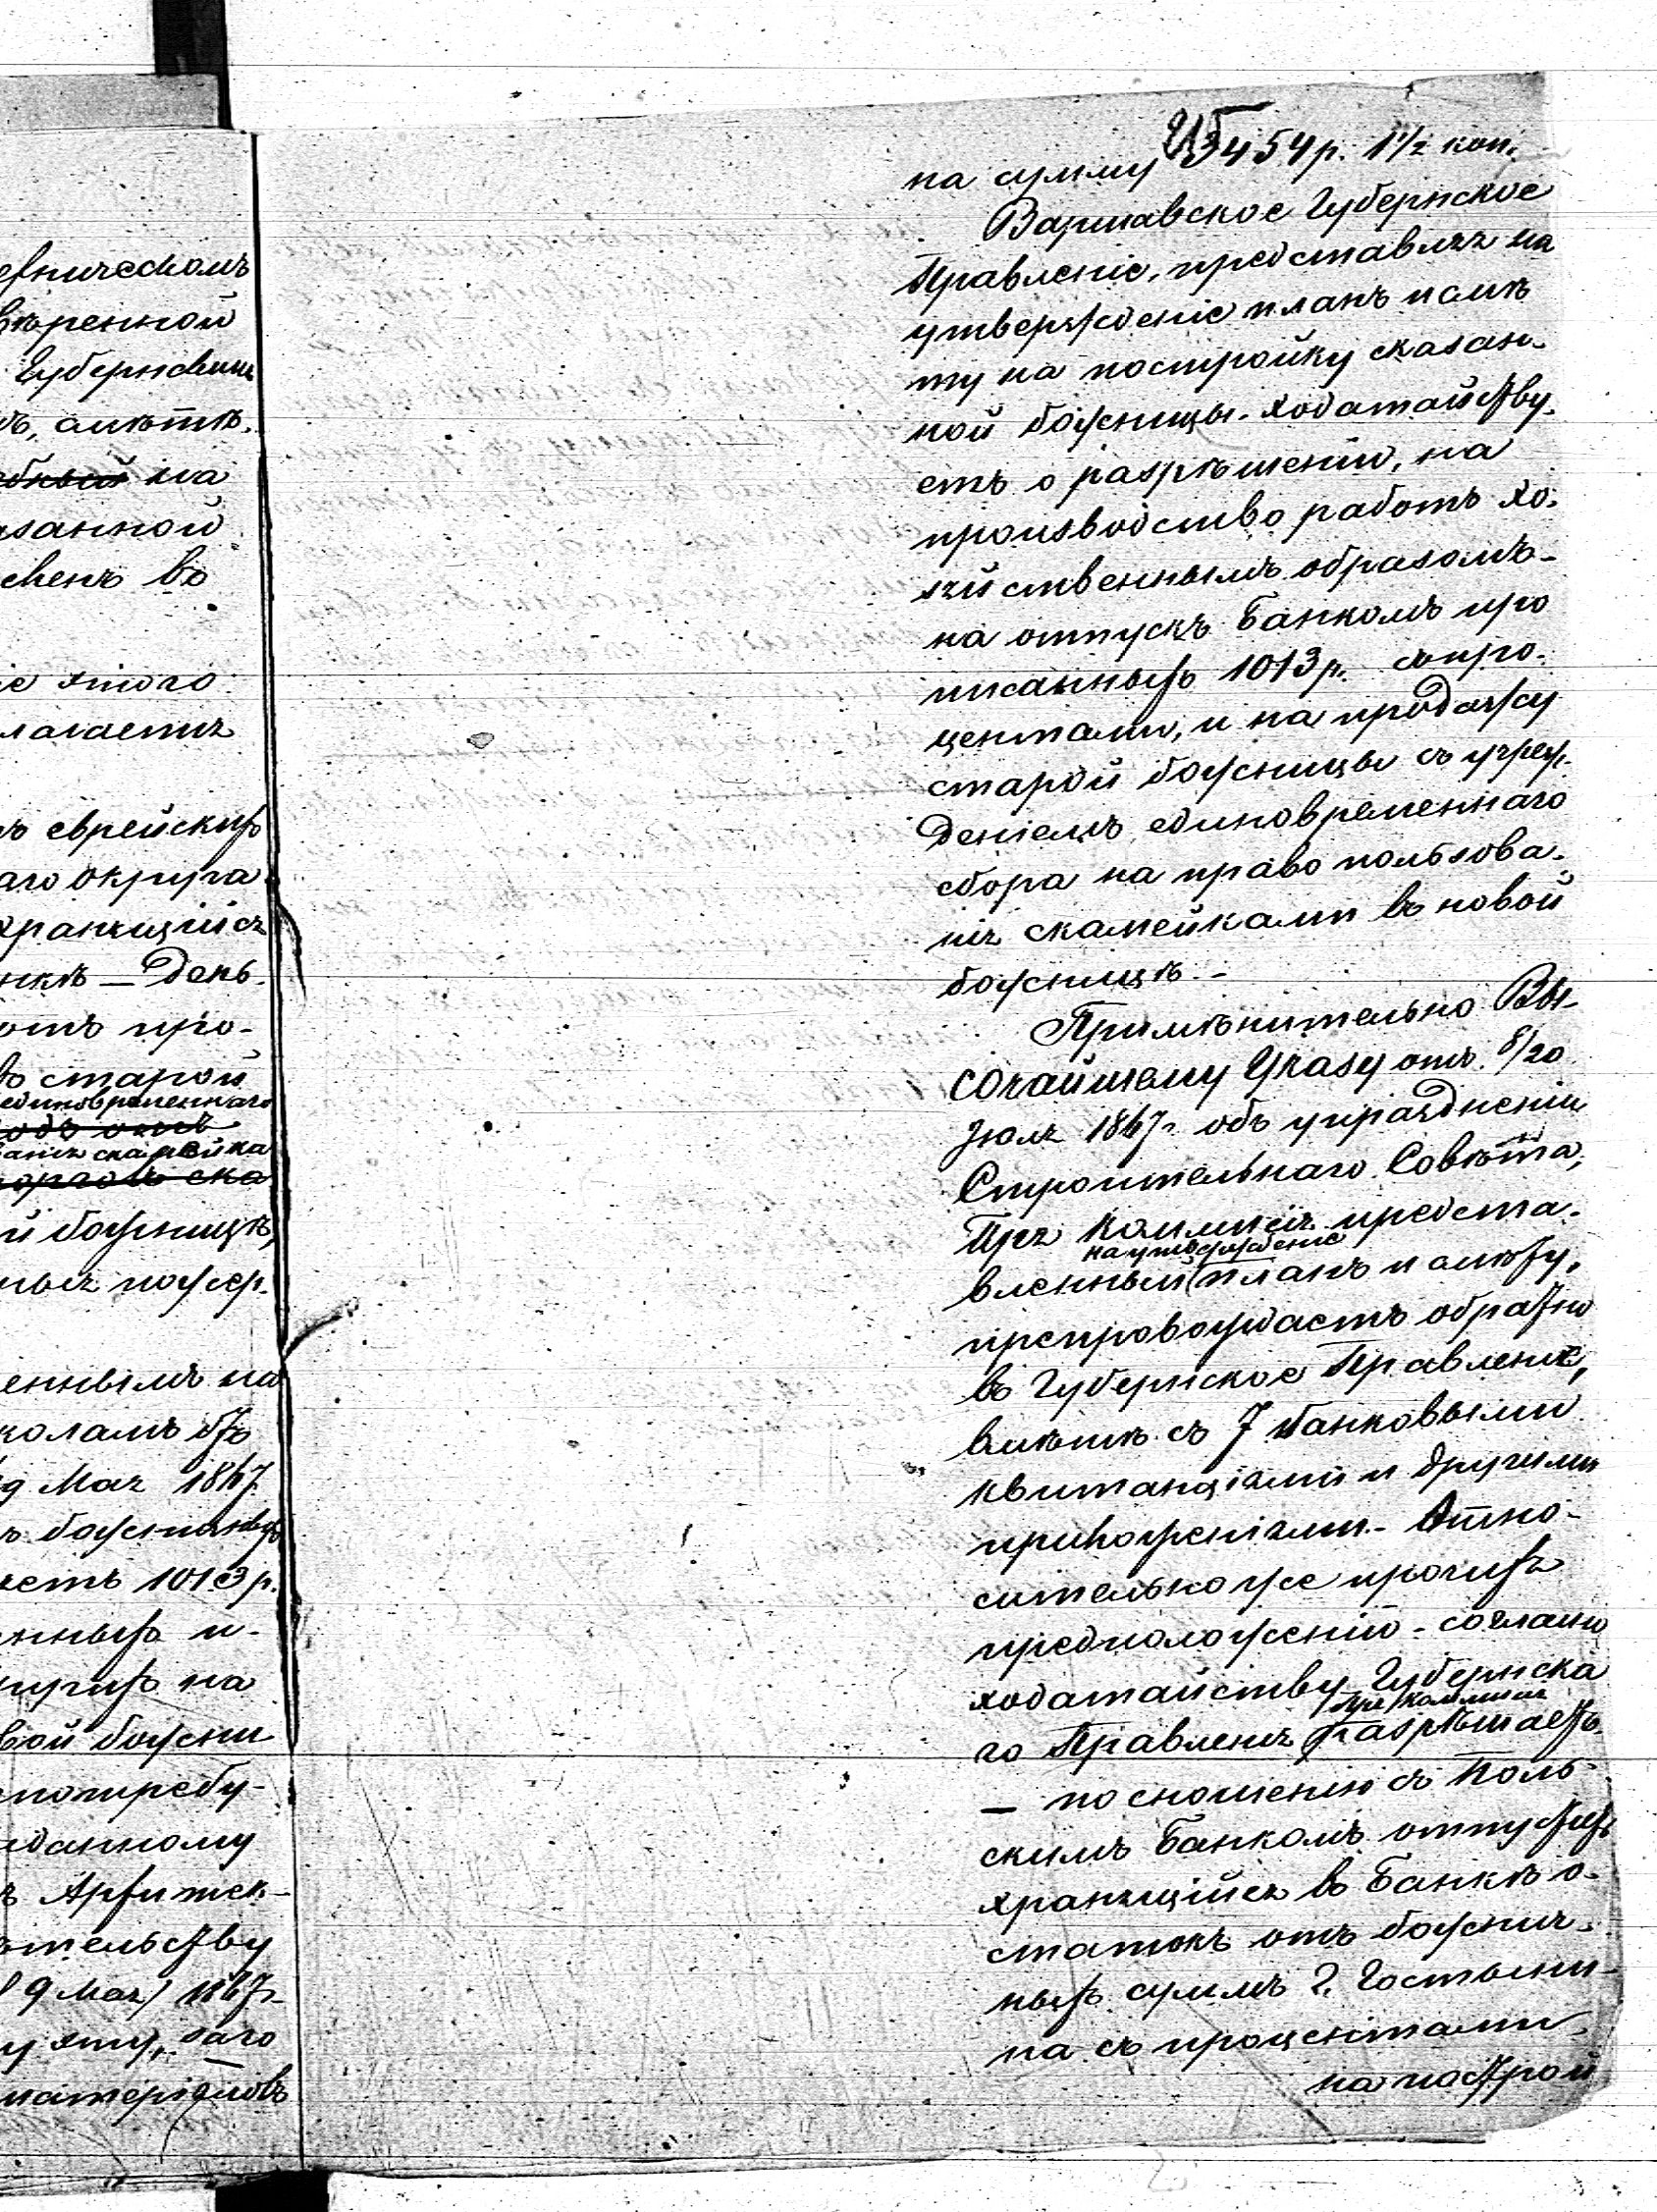 ефическомъ
вѣренной
Губернскимъ
смѣтѣ
на
занной
въ
этого
лагаетъ
еврейскихъ
аго округа
хранящійся
нкѣ — День
отъ про-
въ старой
единовременнаго
скамейка
ска
й божницѣ,
ныя пожер-
еннымъ на
коламъ
9 Мая 1867
1013 р.
нныхъ и
на
вой божни
потребу-
данному
Архитек-
9 Мая) 1867
у эту, заго
матеріаловъ
на сумму 454 р. 1 1/2 коп.
Варшавское Губернское
Правленіе, представляя на
утвержденіе планъ и смѣ
ту на постройку сказан-
ной божницы - ходатайству-
етъ о разрѣшеніи, на
производство работъ хо-
зяйственнымъ образомъ -
на отпускъ Банкомъ про
писанныхъ 1013 р. съ про-
центами, и на продажу
старой божницы съ учреж-
деніемъ единовременнаго
сбора на право пользова-
нія скамейками въ новой
божницѣ. -
Примѣнительно Вы-
сочайшему Указу отъ 8/20
Іюля 1867 г. объ упраздненіи
Строительнаго Совѣта,
Пр. Коммисія предста-
на утвержденіе
вленный планъ и смѣту,
препровождаетъ обратно
въ Губернское Правленіе,
вмѣстѣ съ 7 банковыми
квитанціями и другими
приложеніями. - Отно-
сительно же прочихъ
предположеній - согласно
ходатайству Губернска
Пр. Коммисія
го Правленія разрѣшаетъ
— по сношенію съ Поль-
скимъ Банкомъ отпустить
хранящійся въ Банкѣ о-
статокъ отъ божнич-
ныхъ суммъ г. Гостыни-
на съ процентами
на построй